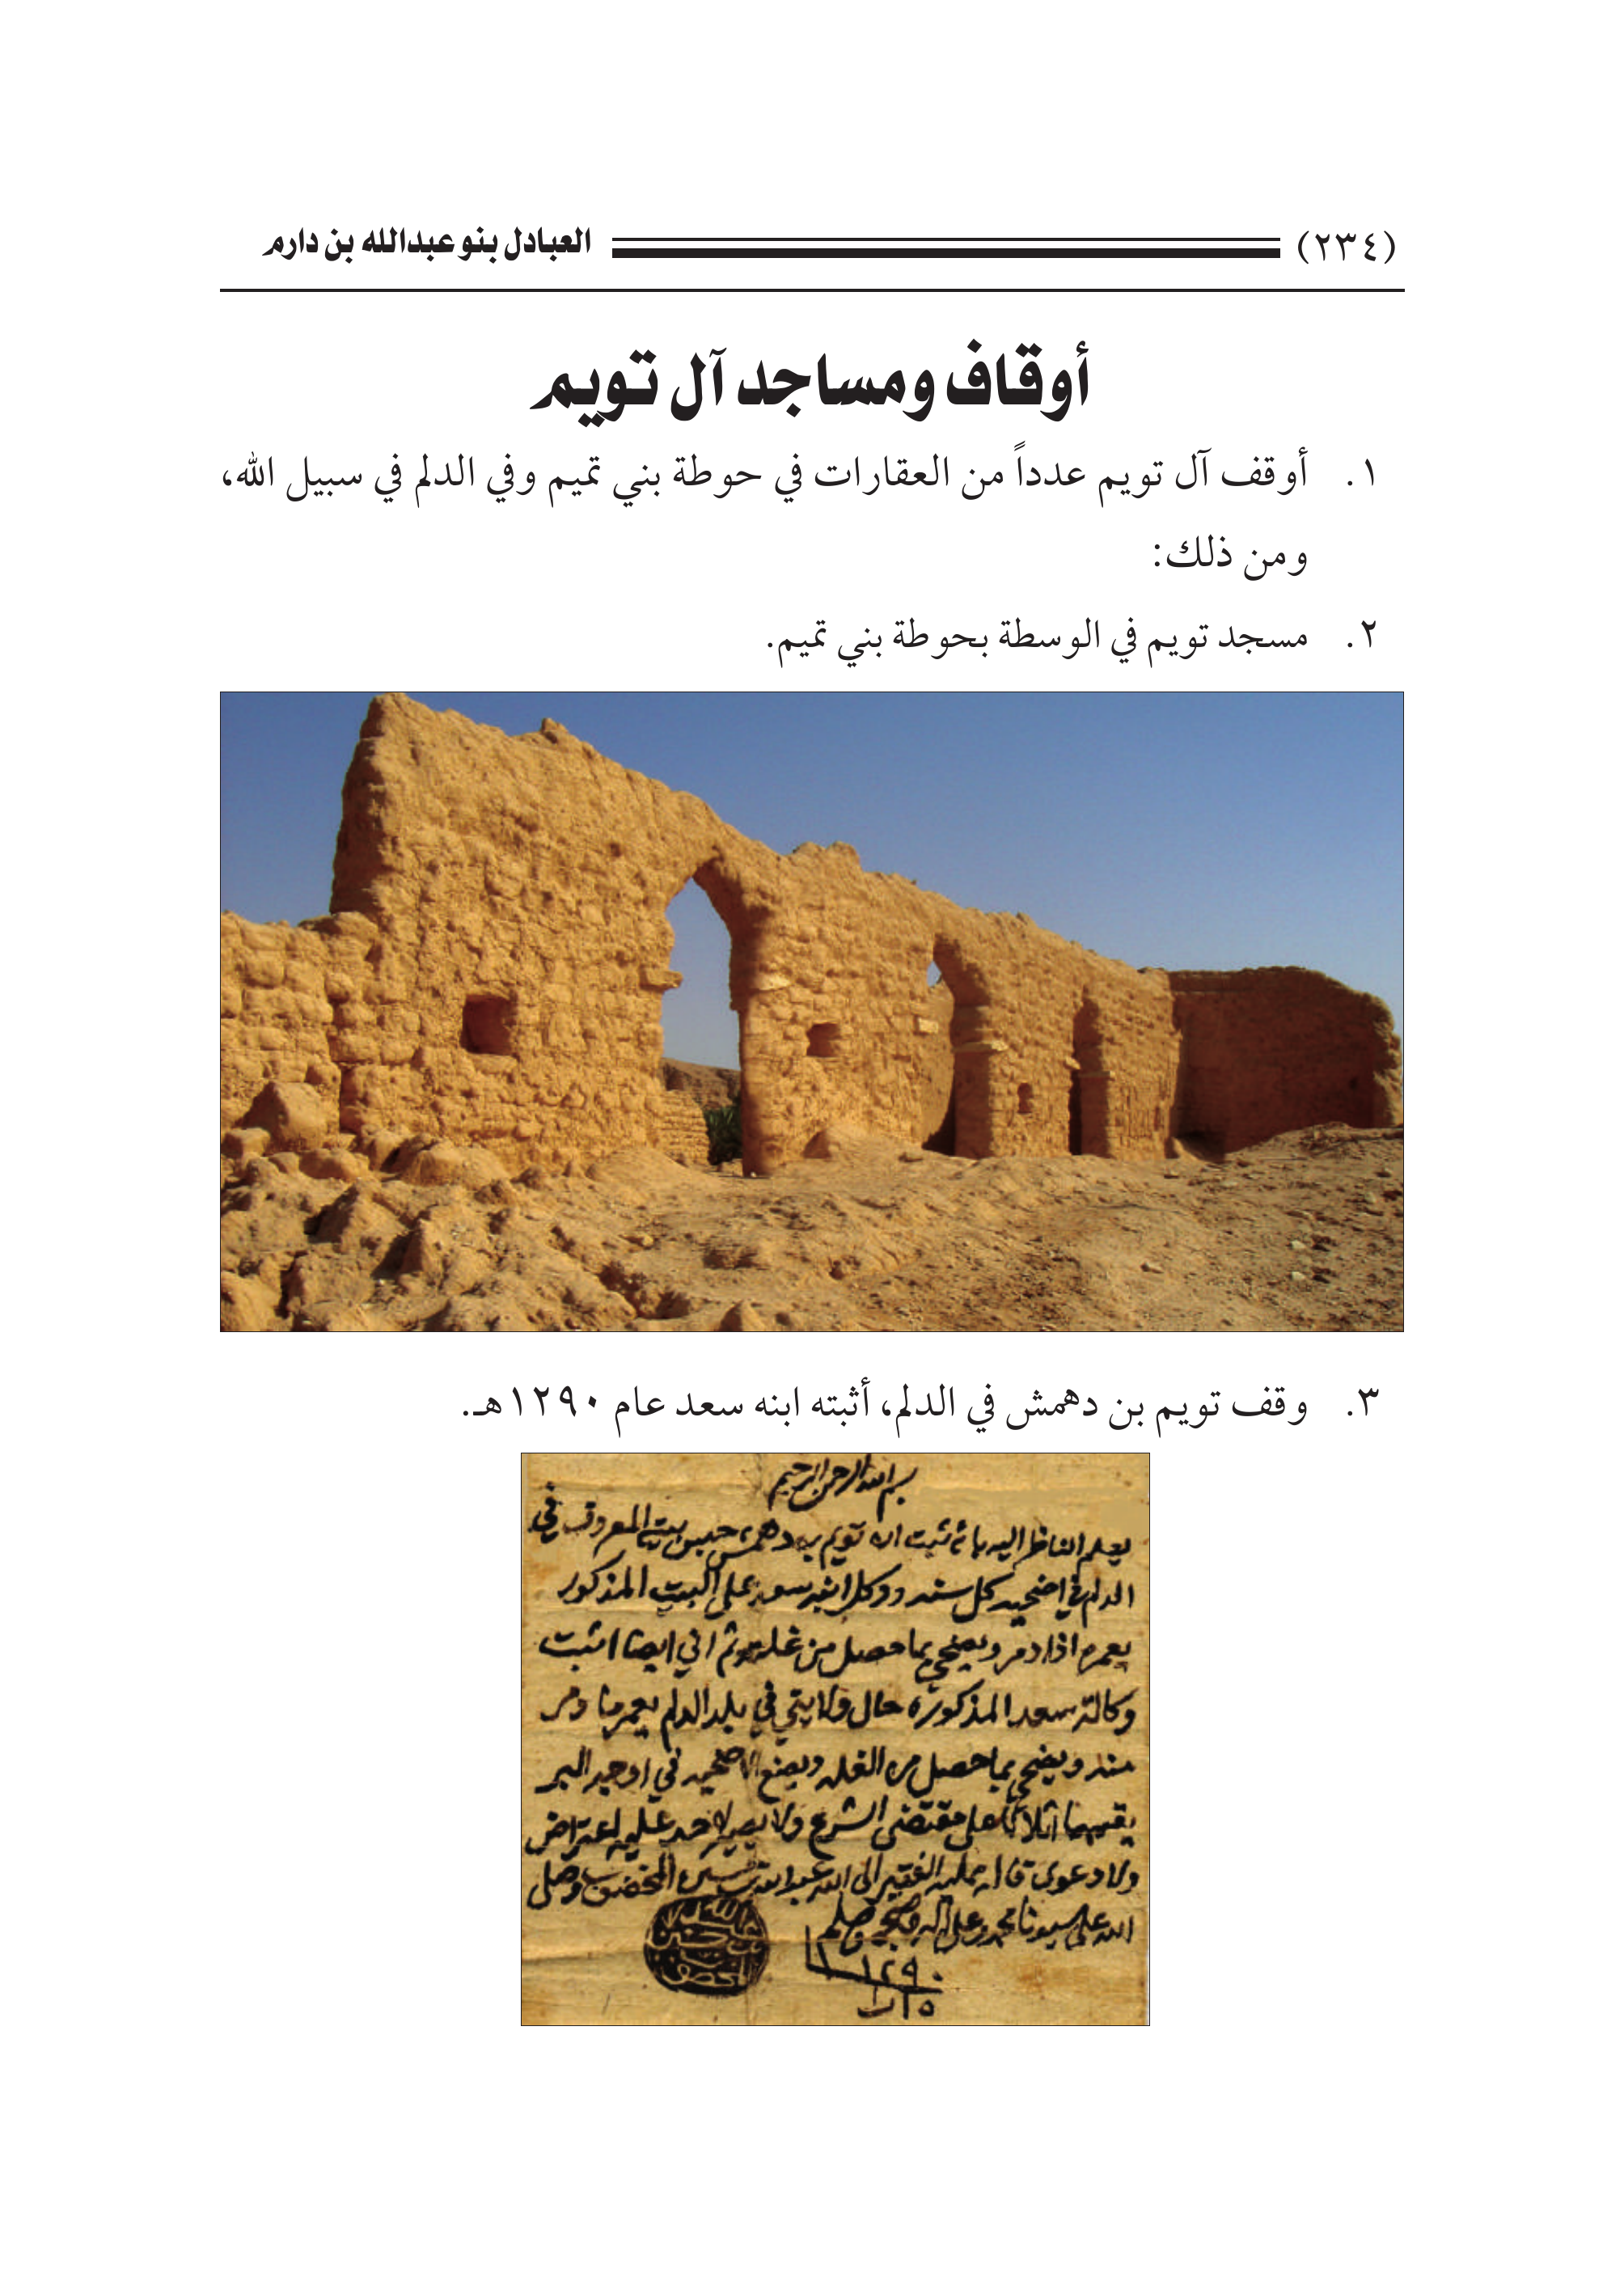 (٢٣٤) العبادل بنو عبدالله بن دارم
أوقاف ومساجد آل تويم
١. أوقف آل تويم عدداً من العقارات في حوطة بني تميم وفي الدلم في سبيل الله،
ومن ذلك:
٢. مسجد تويم في الوسطة بحوطة بني تميم.
٣. وقف تويم بن دهمش في الدلم، أثبته ابنه سعد عام ١٢٩٠هـ.
بسم الله الرحمن الرحيم
يعلم الناظر اليه بانه ثبت ان تويم بن دهمش حبس بيته المعروف في
الدلم في اضحيه كل سنه ووكل ابنه سعد على البيت المذكور
يعمره اذا دمر ويضحي بما حصل من غلته ثم اني ايضا اثبت
وكالة سعد المذكوره حال ولايتي في بلد الدلم يعمر ما دمر
منه ويضحي بما حصل من الغله ويضع الاضحيه في اوجه البر
يقسمها اثلاثا على مقتضى الشرع ولا يصير لاحد عليه اعتراض
ولا دعوى قاله ممليه الفقير الى الله عبدالله بن حسين المخضوب وصلى
الله على سيدنا محمد وعلى اله وصحبه وسلم
١٢٩٠